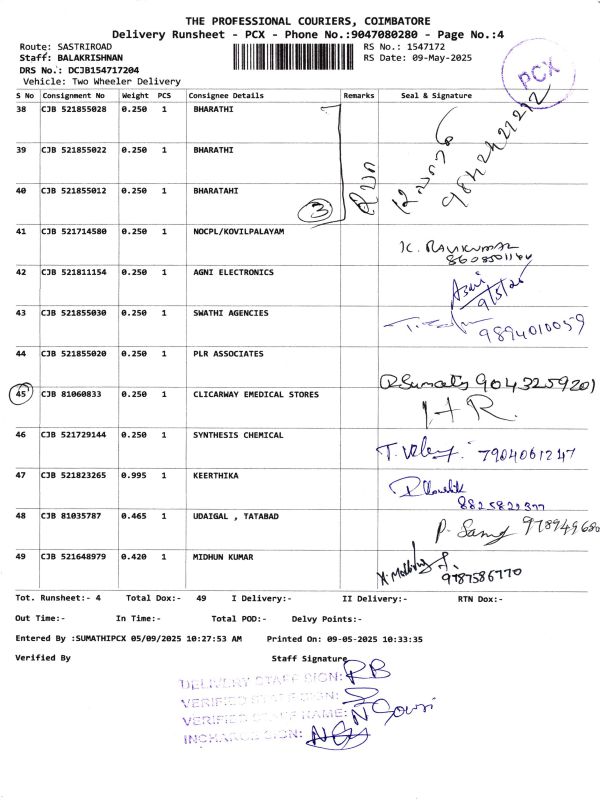 THE PROFESSIONAL COURIERS, COIMBATORE
Delivery Runsheet - PCX - Phone No.:9047080280 - Page No.:4
Route: SASTRIROAD
RS No.: 1547172
Staff: BALAKRISHNAN
RS Date: 09-May-2025
DRS No.: DCJB154717204
Vehicle: Two Wheeler Delivery
PCX
S No Consignment No Weight PCS Consignee Details Remarks Seal & Signature
38 CJB 521855028 0.250 1 BHARATHI
39 CJB 521855022 0.250 1 BHARATHI
40 CJB 521855012 0.250 1 BHARATAHI
3
41 CJB 521714580 0.250 1 NOCPL/KOVILPALAYAM
K. RAVIKUMAR
42 CJB 521811154 0.250 1 AGNI ELECTRONICS
43 CJB 521855030 0.250 1 SWATHI AGENCIES
9894010059
44 CJB 521855020 0.250 1 PLR ASSOCIATES
9043259201
45 CJB 81060833 0.250 1 CLICARWAY EMEDICAL STORES
46 CJB 521729144 0.250 1 SYNTHESIS CHEMICAL
7904061247
47 CJB 521823265 0.995 1 KEERTHIKA
48 CJB 81035787 0.465 1 UDAIGAL , TATABAD
49 CJB 521648979 0.420 1 MIDHUN KUMAR
9787586770
Tot. Runsheet:- 4 Total Dox:- 49 I Delivery:- II Delivery:- RTN Dox:-
Out Time:- In Time:- Total POD:- Delvy Points:-
Entered By :SUMATHIPCX 05/09/2025 10:27:53 AM Printed On: 09-05-2025 10:33:35
Verified By Staff Signature
DELIVERY STAFF SIGN: RB
VERIFIED STAFF SIGN:
VERIFIED STAFF NAME: N Gowri
INCHARGE SIGN: